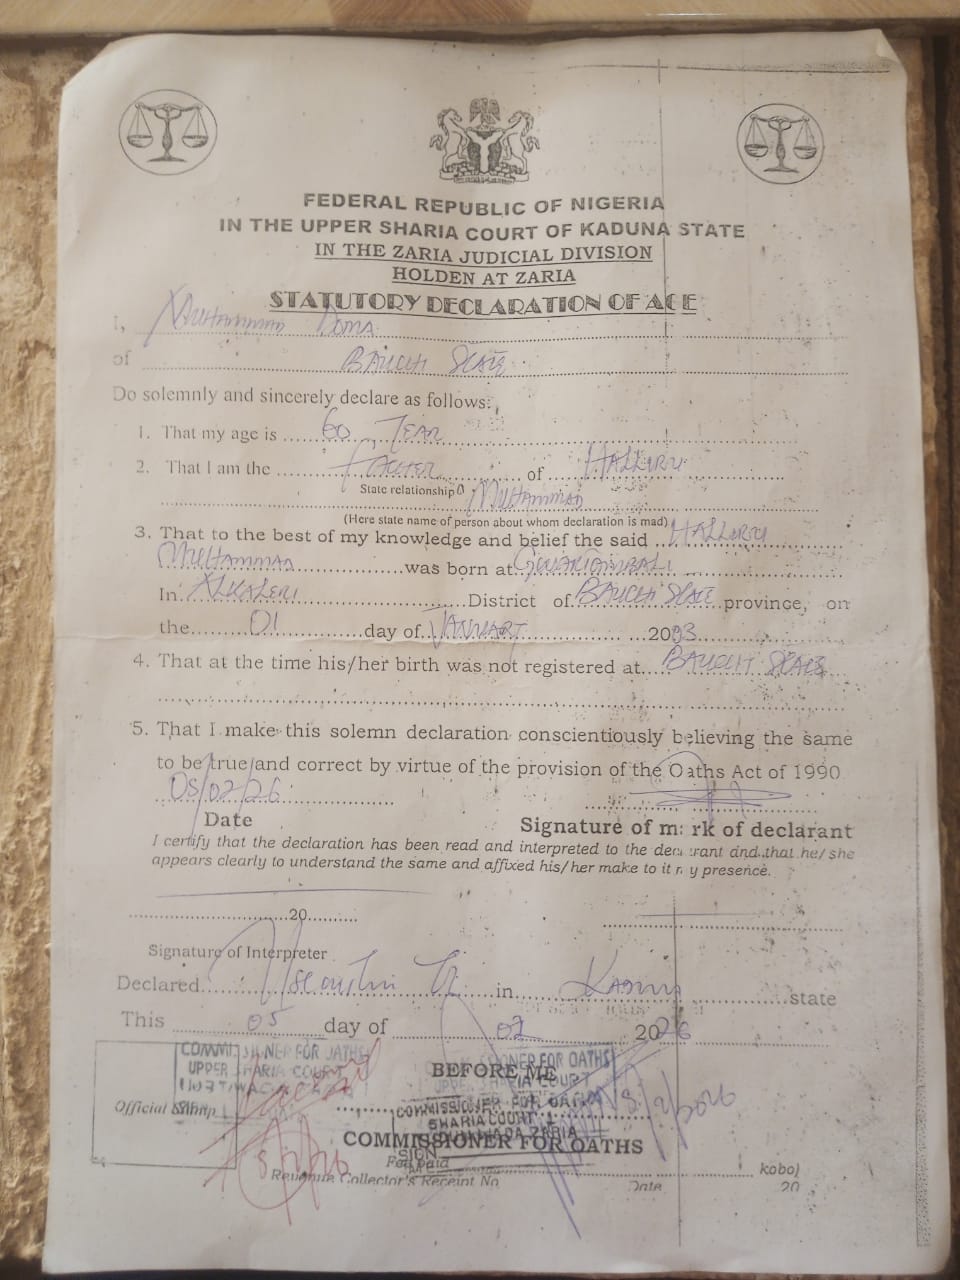 FEDERAL REPUBLIC OF NIGERIA
IN THE UPPER SHARIA COURT OF KADUNA STATE
IN THE ZARIA JUDICIAL DIVISION
HOLDEN AT ZARIA
STATUTORY DECLARATION OF AGE
I, Muhammad Doma
of Bauchi State
Do solemnly and sincerely declare as follows:
1. That my age is 60 Year
2. That I am the Father of Halliru
State relationship Muhammad
(Here state name of person about whom declaration is mad)
3. That to the best of my knowledge and belief the said Halliru
Muhammad was born at
In Alkaleri District of Bauchi State province, on
the 01 day of January 2003
4. That at the time his/her birth was not registered at Bauchi State
5. That I make this solemn declaration conscientiously believing the same
to be true and correct by virtue of the provision of the Oaths Act of 1990
05/02/26
Date
Signature of m rk of declarant
I certify that the declaration has been read and interpreted to the dec rant and that he/she
appears clearly to understand the same and affixed his/her make to it my presence.
20
Signature of Interpreter
Declared in Kaduna state
This 05 day of 02 2026
COMMISSIONER FOR OATHS
UPPER SHARIA COURT
BEFORE ME
Official Stamp
COMMISSIONER FOR OATHS
SHARIA COURT 1
ZARIA
COMMISSIONER FOR OATHS
SIGN
Fee paid kobo
Revenue Collector's Receipt No Date 20